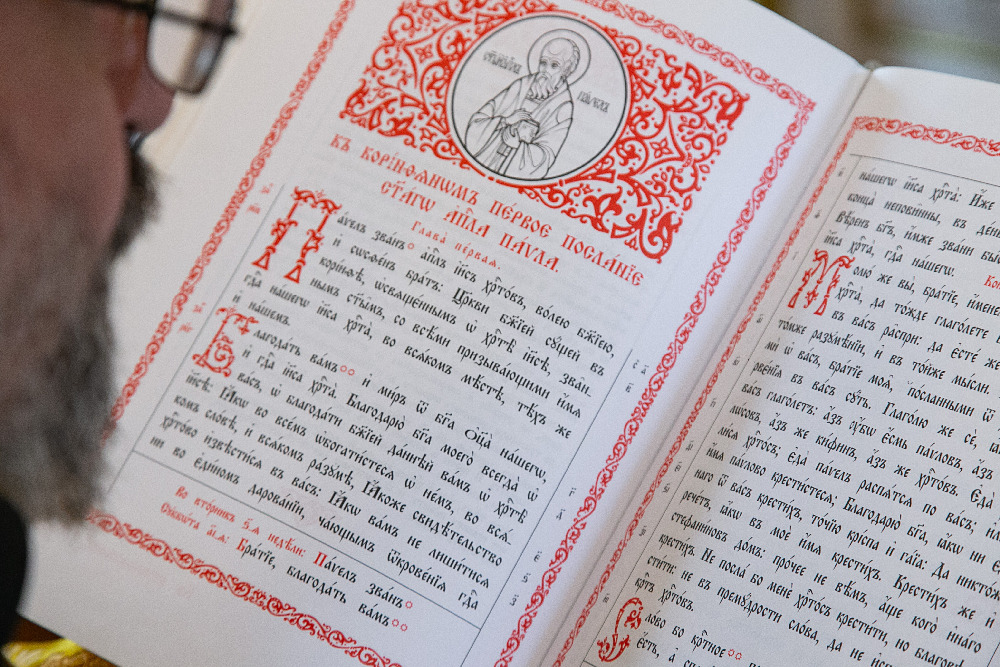 къ корі́нѳѧнѡмъ пе́рвое посла́нїе
ст҃а́гѡ а҆п҃ла па́ѵла.
Глава̀ пе́рваѧ.
Па́ѵелъ зва́нъ а҆п҃лъ і҆и҃съ хрⷭ҇то́въ, во́лею бж҃їею,
и҆ сѡсѳе́нъ бра́тъ: Цр҃кви бж҃їей сꙋ́щей въ
корі́нѳѣ, ѡ҆сщ҃е́ннымъ ѡ҆ хрⷭ҇тѣ̀ і҆и҃сѣ, зва̑н-
нымъ ст҃ы̑мъ, со всѣ́ми призыва́ющими и҆́мѧ
гдⷭ҇а на́шегѡ і҆и҃са хрⷭ҇та̀, во всѧ́комъ мѣ́стѣ, тѣ́хъ же
и҆ на́шемъ.
Благода́ть ва́мъ и҆ ми́ръ ѿ бг҃а ѻ҆ц҃а̀ на́шегѡ,
и҆ гдⷭ҇а і҆и҃са хрⷭ҇та̀. Благодарю̀ бг҃а моего̀ всегда̀ ѡ҆
ва́съ, ѡ҆ благода́ти бж҃їей да́ннѣй ва́мъ ѡ҆ хрⷭ҇тѣ̀
і҆и҃сѣ: Ꙗ҆́кѡ во все́мъ ѡ҆богати́стесѧ ѡ҆ не́мъ, во всѧ́-
комъ сло́вѣ, и҆ всѧ́комъ ра́зꙋмѣ, Ꙗ҆́коже свидѣ́тельство
хрⷭ҇то́во и҆звѣсти́сѧ въ ва́съ: Ꙗ҆́кѡ ва́мъ не лиши́тисѧ
ни во є҆ди́номъ дарова́нїи, ча́ющымъ ѿкрове́нїѧ гдⷭ҇а
Во вто́рникъ 5-ѧ недѣ́ли: Па́ѵелъ зва́нъ
Бра́тїе, благода́ть ва́мъ
на́шегѡ і҆и҃са хрⷭ҇та̀: И҆́же
конца̀ непови̑нны, въ де́нь
Вѣ́ренъ бг҃ъ, и҆́мже зва́ни бы́с
і҆и҃са хрⷭ҇та̀, гдⷭ҇а на́шегѡ.
Молю́ же вы̀, бра́тїе, и҆́менем
хрⷭ҇та̀, да то́жде глаго́лете в
въ ва́съ ра̑спри: да є҆стѐ же
то́мже разꙋмѣ́нїи, и҆ въ то́йже мы́сли.
ми ѡ҆ ва́съ, бра́тїе моѧ̑, по́сланными ѿ
рве́нїѧ въ ва́съ сꙋ́ть. Глаго́лю же сѐ,
ва́съ глаго́летъ: а҆́зъ ᲂу҆́бѡ є҆́смь па́ѵловъ, а҆́зъ
лло́совъ, а҆́зъ же ки́финъ, а҆́зъ же хрⷭ҇то́въ. Є҆да̀
хрⷭ҇то́съ; є҆да̀ па́ѵелъ распѧ́тсѧ по ва́съ;
па́ѵлово крести́стесѧ; Благодарю̀ бг҃а, ꙗ҆́кѡ ни є҆
наго ѿ ва́съ крести́хъ, то́чїю крі́спа и҆ га́їа: Да никто́ж
рече́тъ, ꙗ҆́кѡ въ моѐ и҆́мѧ крести́хъ. Крести́хъ же и҆
стефани́новъ до́мъ: про́чее не вѣ́мъ, а҆́ще кого̀ и҆на́го
крести́хъ. Не посла́ бо менѐ хрⷭ҇то́съ крести́ти, но благовѣ
сти́ти: не въ премꙋ́дрости сло́ва, да не и҆сп
кр҇тъ хрⷭ҇то́въ.
Сло́во бо крⷭ҇тное
є҆́сть, а҆